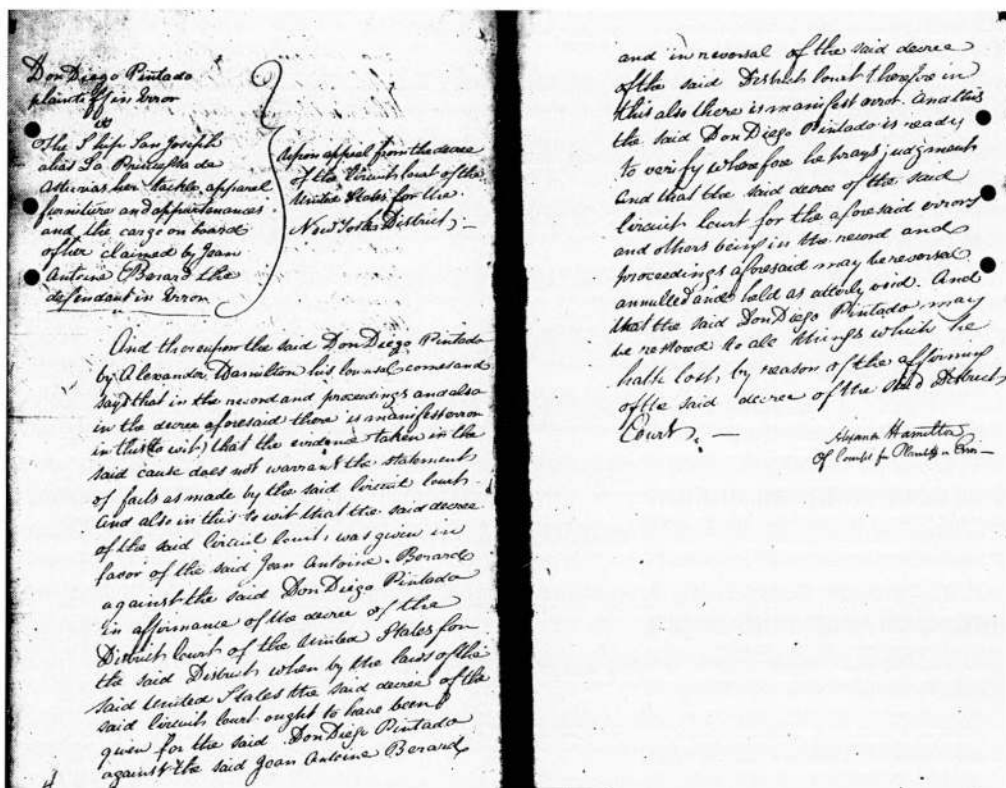 Don Diego Pintado
plaintiff in Error
vs
The Ship San Joseph
alias La Princessa de
Asturias her tackle, apparel
furniture and appurtenances
and the cargo on board
of her claimed by Jean
Antoine Berard the
defendant in Error
Upon appeal from the decree
of the Circuit Court of the
United States for the
New York District, —
And thereupon the said Don Diego Pintado
by Alexander Hamilton his Counsel comes and
says that in the record and proceedings and also
in the decree aforesaid there is manifest error
in this (to wit) that the evidence taken in the
said cause does not warrant the statement
of facts as made by the said Circuit Court
And also in this to wit that the said decree
of the said Circuit Court, was given in
favor of the said Jean Antoine Berard
against the said Don Diego Pintado
in affirmance of the decree of the
District Court of the United States for
the said District, when by the laws of the
said United States the said decree of the
said Circuit Court ought to have been
given for the said Don Diego Pintado
against the said Jean Antoine Berard
and in reversal of the said decree
of the said District Court therefore in
this also there is manifest error. And this
the said Don Diego Pintado is ready
to verify wherefore he prays judgment
And that the said decree of the said
Circuit Court for the aforesaid errors
and others being in the record and
proceedings aforesaid may be reversed
annulled and held as utterly void. And
that the said Don Diego Pintado may
be restored to all things which he
hath lost, by reason of the affirming
of the said decree of the said District
Court. —
Alexander Hamilton
Of Counsel for Plaintiff in Error —